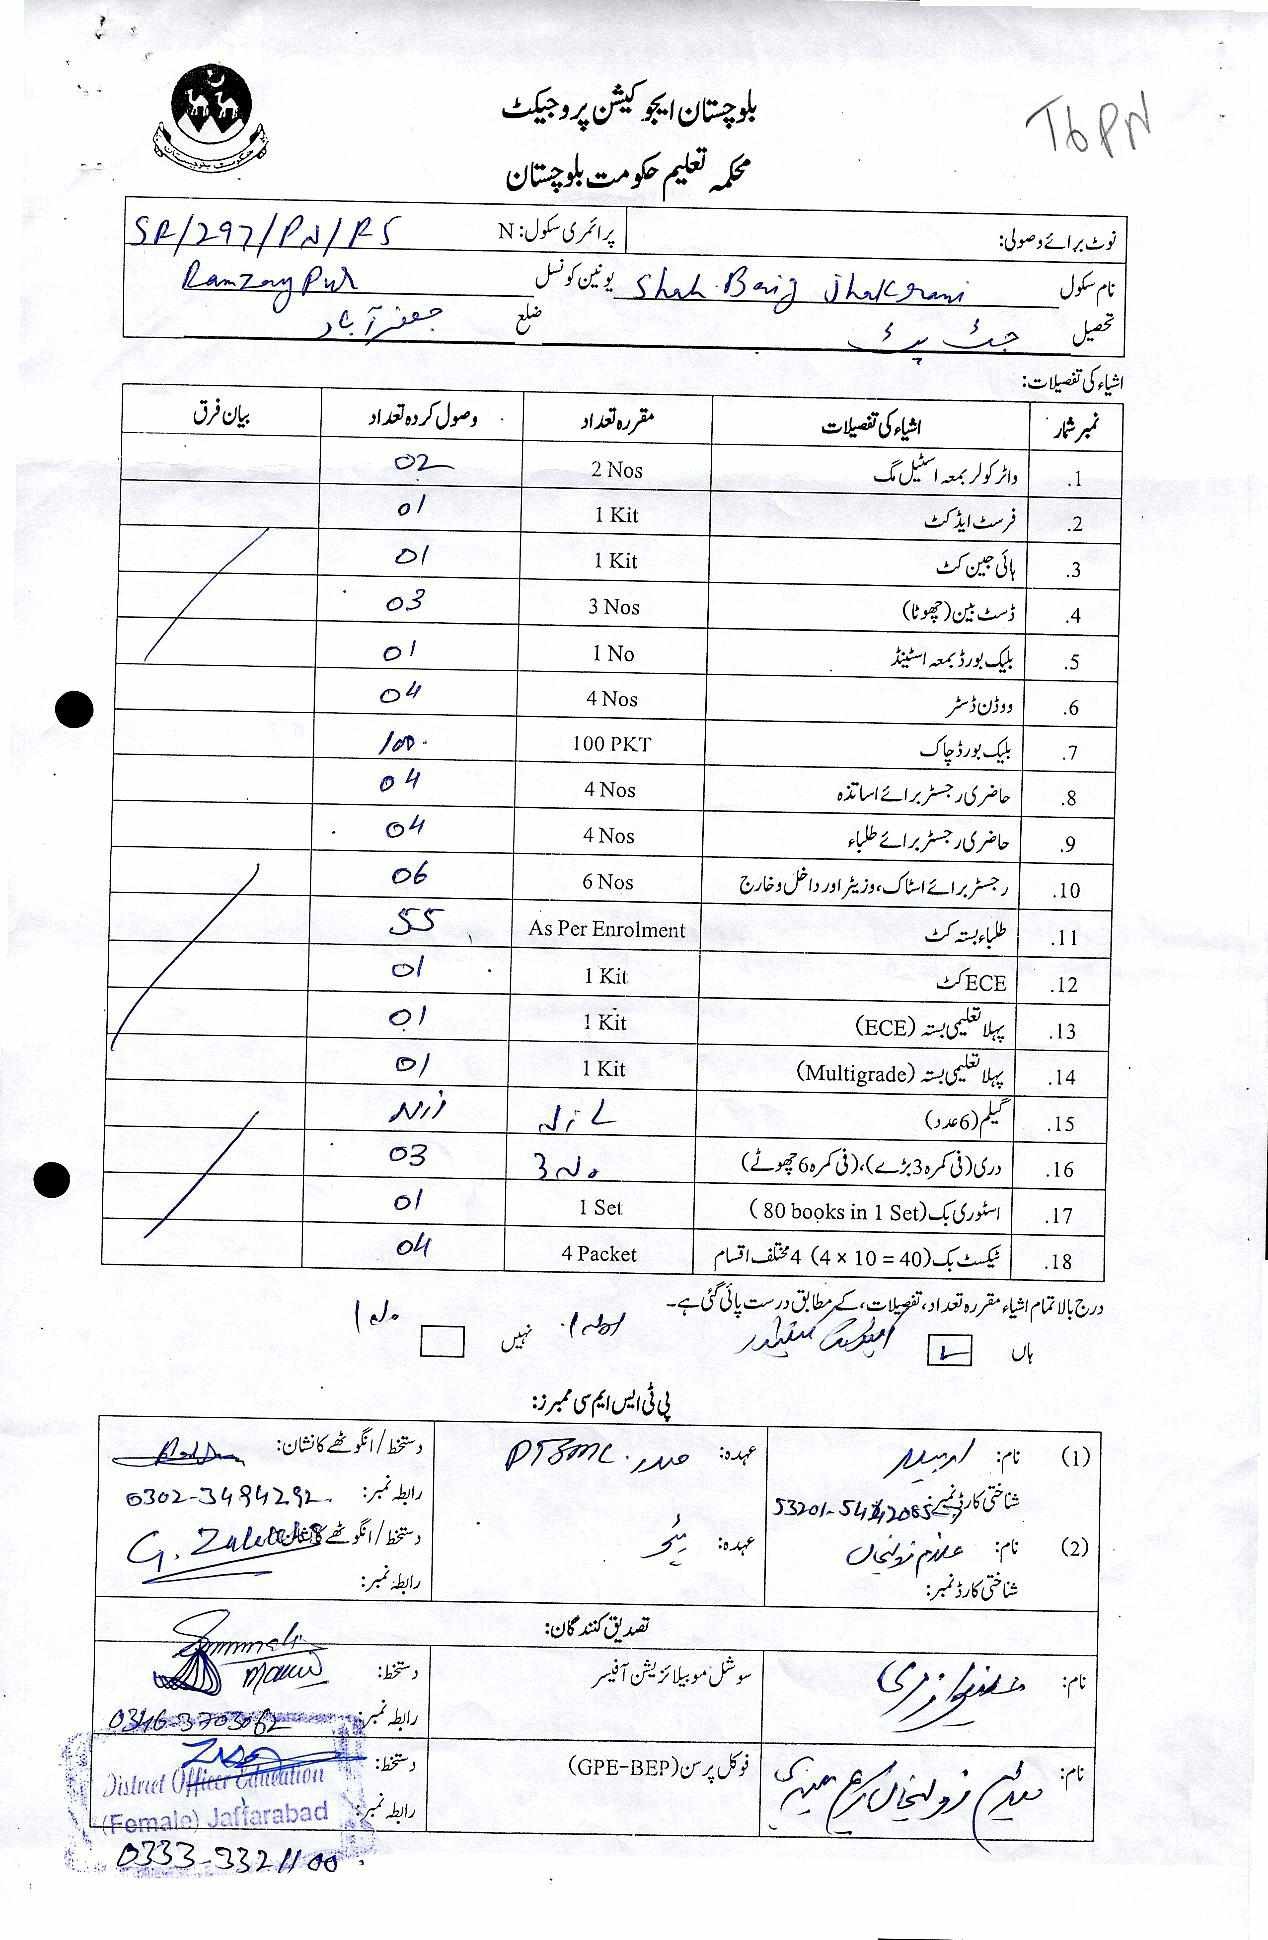 T6PN
حکومت بلوچستان
بلوچستان ایجوکیشن پروجیکٹ
محکمہ تعلیم حکومت بلوچستان
نوٹ برائے وصولی: پرائمری سکول: N SR/297/PN/RS
نام سکول Shah Baig Jhakrani یونین کونسل
تحصیل جھٹ پٹ ضلع جعفر آباد
اشیاء کی تفصیلات:
نمبر شمار اشیاء کی تفصیلات مقررہ تعداد وصول کردہ تعداد بیان فرق
1. واٹر کولر بمعہ اسٹیل مگ 2 Nos 02
2. فرسٹ ایڈ کٹ 1 Kit 01
3. ہائی جین کٹ 1 Kit 01
4. ڈسٹ بین (چھوٹا) 3 Nos 03
5. بلیک بورڈ بمعہ اسٹینڈ 1 No 01
6. ووڈن ڈسٹر 4 Nos 04
7. بلیک بورڈ چاک 100 PKT 100
8. حاضری رجسٹر برائے اساتذہ 4 Nos 04
9. حاضری رجسٹر برائے طلباء 4 Nos 04
10. رجسٹر برائے اسٹاک، وزیٹر اور داخل و خارج 6 Nos 06
11. طلباء بستہ کٹ As Per Enrolment 55
12. ECE کٹ 1 Kit 01
13. پہلا تعلیمی بستہ (ECE) 1 Kit 01
14. پہلا تعلیمی بستہ (Multigrade) 1 Kit 01
15. گیلم (6 عدد) Nil
16. دری (فی کمرہ 3 بڑے)، (فی کمرہ 6 چھوٹے) 3 No 03
17. اسٹوری بک (80 books in 1 Set) 1 Set 01
18. ٹیکسٹ بک (4 × 10 = 40) 4 مختلف اقسام 4 Packet 04
درج بالا تمام اشیاء مقررہ تعداد، تفصیلات، کے مطابق درست پائی گئی ہے۔
ہاں نہیں
پی ٹی ایس ایم سی ممبرز:
(1) نام: عہدہ: صدر PTSMC دستخط/انگوٹھے کا نشان:
شناختی کارڈ نمبر: رابطہ نمبر: 0302-3494292
(2) نام: عہدہ: دستخط/انگوٹھے کا نشان:
شناختی کارڈ نمبر: رابطہ نمبر:
تصدیق کنندگان:
نام: سوشل موبیلائزیشن آفیسر دستخط:
رابطہ نمبر: 0346-3703062
نام: فوکل پرسن (GPE-BEP) دستخط:
رابطہ نمبر:
District Officer Education
(Female) Jaffarabad
0333-3321100